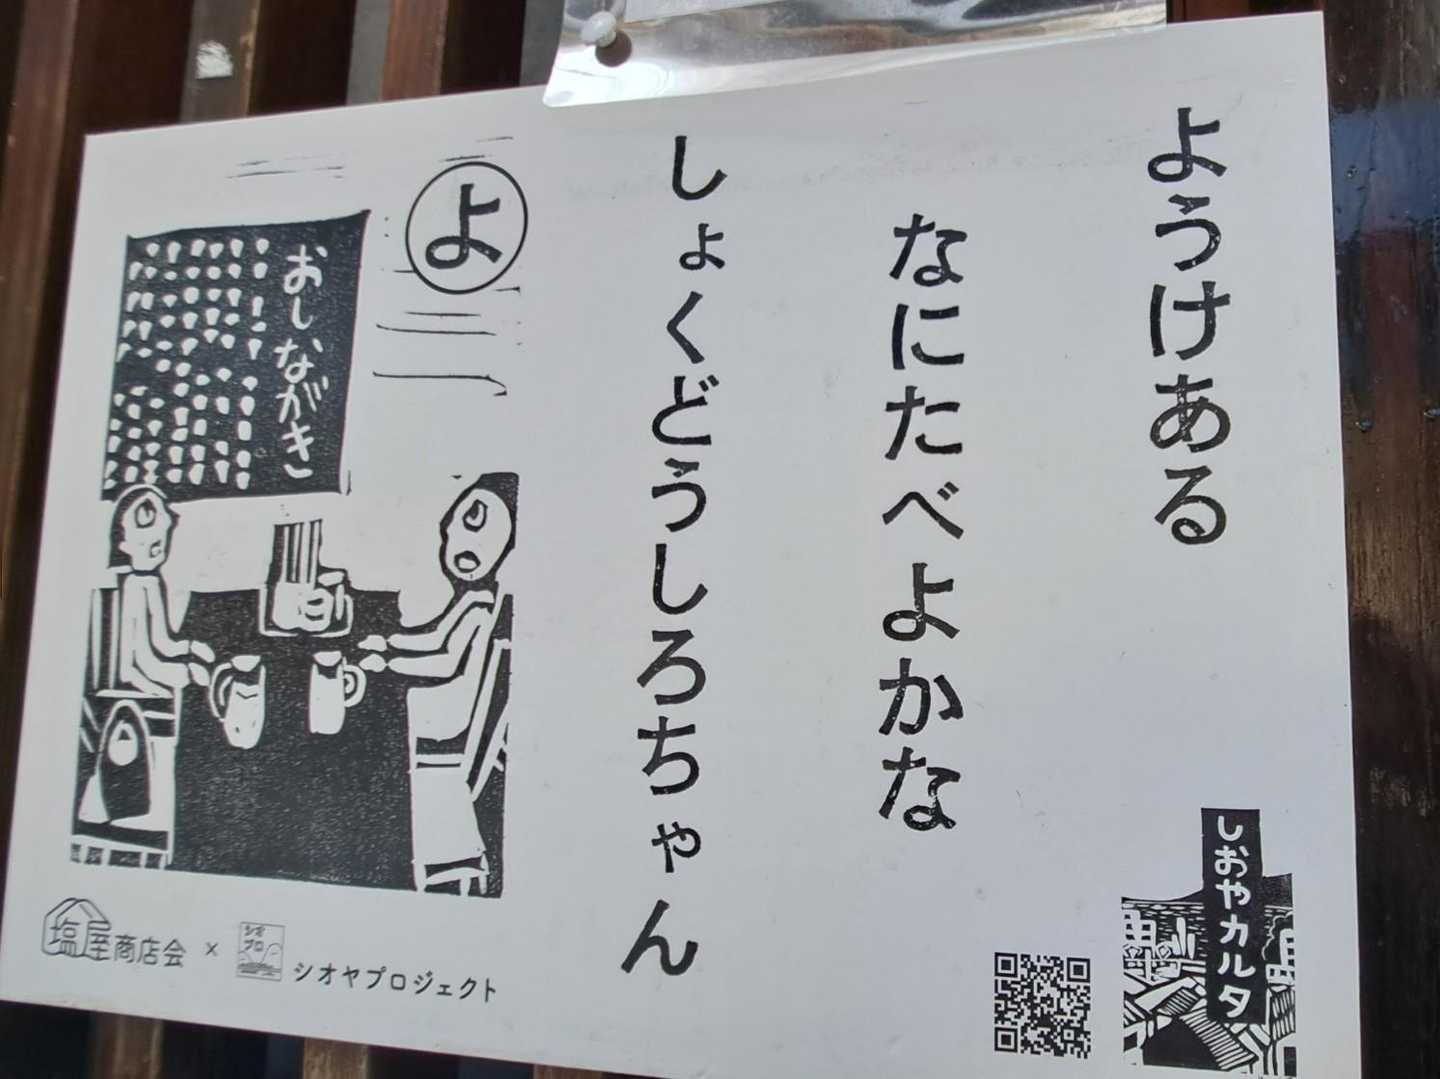 ようけある
なにたべよかな
しょくどうしろちゃん
よ
おしながき
塩屋商店会 × シオプロ シオヤプロジェクト
しおやカルタ